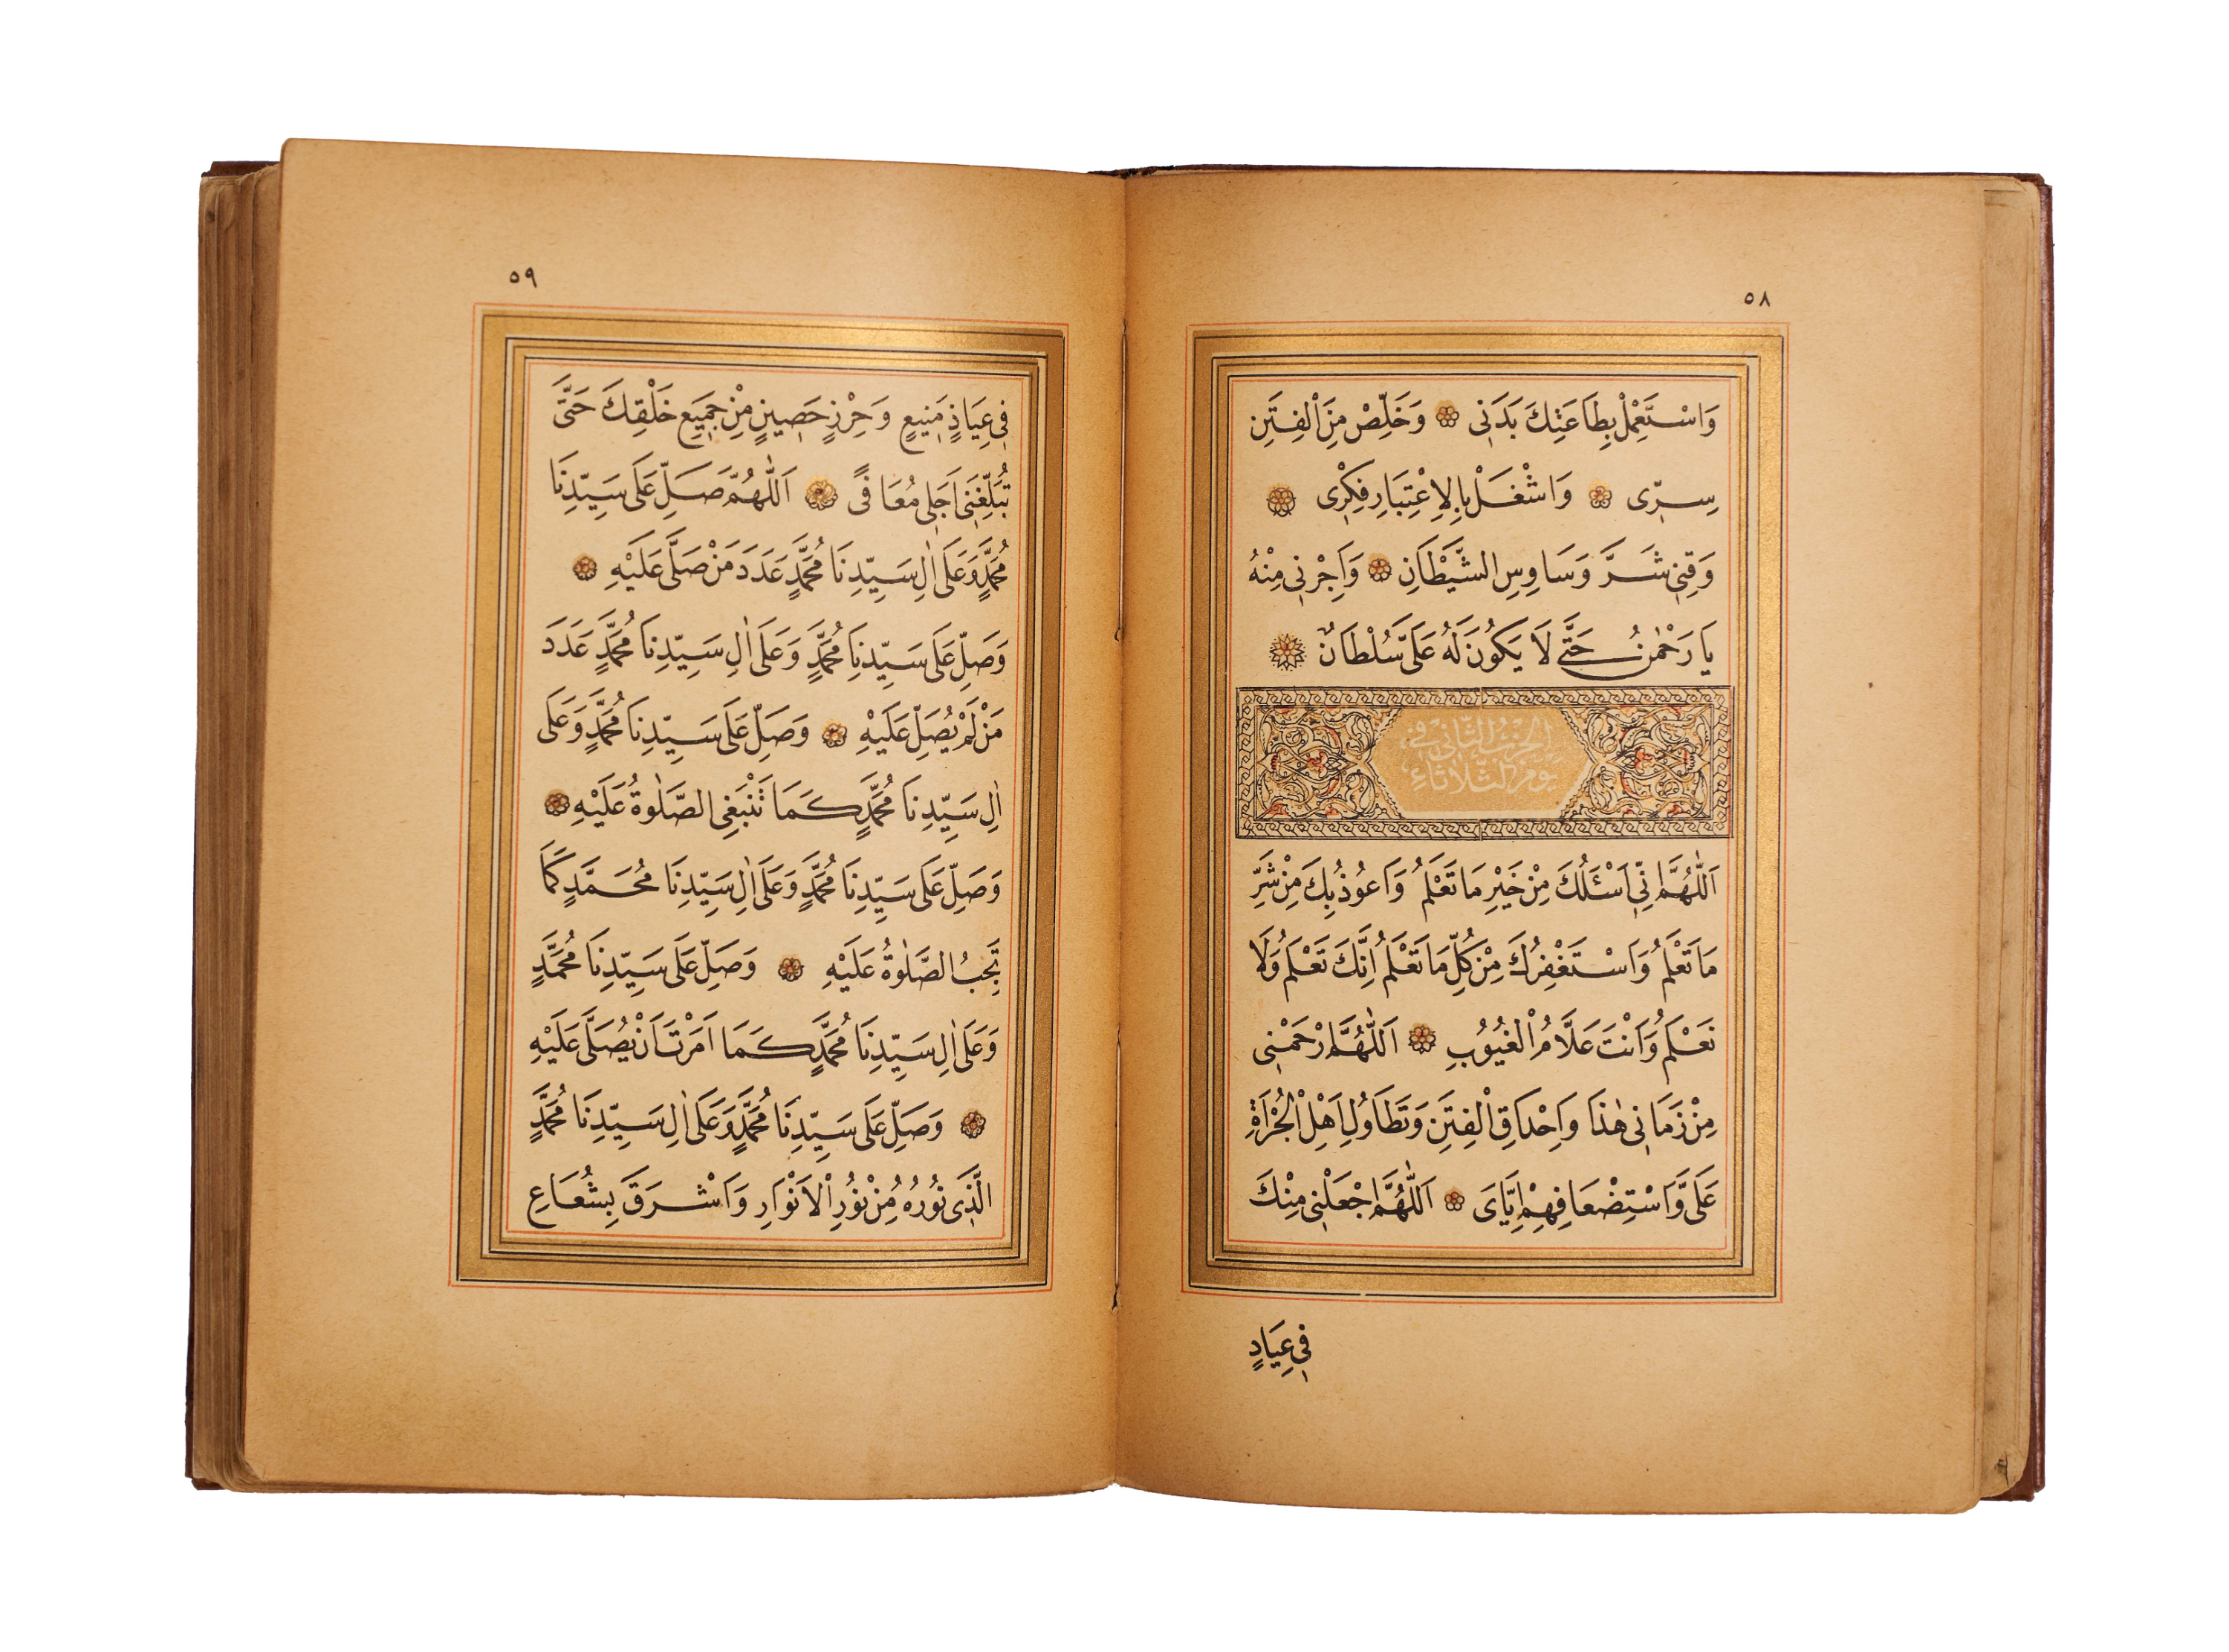 ٥٨
وَاسْتَعْمِلْ بِطَاعَتِكَ بَدَنِى وَخَلِّصْ مِنَ الْفِتَنِ
سِرِّى وَاشْغَلْ بِالِاعْتِبَارِ فِكْرِى
وَقِنِى شَرَّ وَسَاوِسِ الشَّيْطَانِ وَاَجِرْنِى مِنْهُ
يَا رَحْمٰنُ حَتَّى لَا يَكُونَ لَهُ عَلَىَّ سُلْطَانٌ
الحِزْبُ الثَّانِى فِى
يَوْمِ الثَّلَاثَاءِ
اَللّٰهُمَّ اِنِّى اَسْئَلُكَ مِنْ خَيْرِ مَا تَعْلَمُ وَاَعُوذُ بِكَ مِنْ شَرِّ
مَا تَعْلَمُ وَاَسْتَغْفِرُكَ مِنْ كُلِّ مَا تَعْلَمُ اِنَّكَ تَعْلَمُ وَلَا
نَعْلَمُ وَاَنْتَ عَلَّامُ الْغُيُوبِ اَللّٰهُمَّ ارْحَمْنِى
مِنْ زَمَانِى هٰذَا وَاِحْدَاقِ الْفِتَنِ وَتَطَاوُلِ اَهْلِ الْجُرْاَةِ
عَلَىَّ وَاسْتِضْعَافِهِمْ اِيَّاىَ اَللّٰهُمَّ اجْعَلْنِى مِنْكَ
فِى عِيَادٍ
٥٩
فِى عِيَاذٍ مَنِيعٍ وَحِرْزٍ حَصِينٍ مِنْ جَمِيعِ خَلْقِكَ حَتَّى
تُبَلِّغَنِى اَجَلِى مُعَافًى اَللّٰهُمَّ صَلِّ عَلَى سَيِّدِنَا
مُحَمَّدٍ وَعَلَى اٰلِ سَيِّدِنَا مُحَمَّدٍ عَدَدَ مَنْ صَلَّى عَلَيْهِ
وَصَلِّ عَلَى سَيِّدِنَا مُحَمَّدٍ وَعَلَى اٰلِ سَيِّدِنَا مُحَمَّدٍ عَدَدَ
مَنْ لَمْ يُصَلِّ عَلَيْهِ وَصَلِّ عَلَى سَيِّدِنَا مُحَمَّدٍ وَعَلَى
اٰلِ سَيِّدِنَا مُحَمَّدٍ كَمَا تَنْبَغِى الصَّلٰوةُ عَلَيْهِ
وَصَلِّ عَلَى سَيِّدِنَا مُحَمَّدٍ وَعَلَى اٰلِ سَيِّدِنَا مُحَمَّدٍ كَمَا
تَجِبُ الصَّلٰوةُ عَلَيْهِ وَصَلِّ عَلَى سَيِّدِنَا مُحَمَّدٍ
وَعَلَى اٰلِ سَيِّدِنَا مُحَمَّدٍ كَمَا اَمَرْتَ اَنْ يُصَلَّى عَلَيْهِ
وَصَلِّ عَلَى سَيِّدِنَا مُحَمَّدٍ وَعَلَى اٰلِ سَيِّدِنَا مُحَمَّدٍ
الَّذِى نُورُهُ مِنْ نُورِ الْاَنْوَارِ وَاَشْرَقَ بِشُعَاعِ